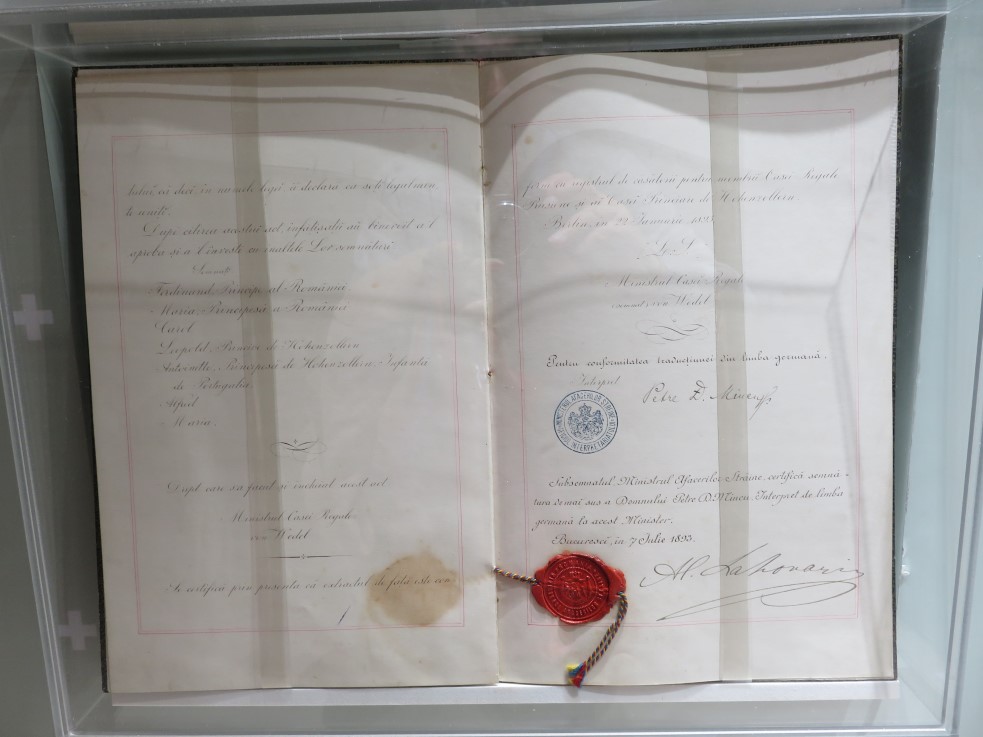 că deci în numele legii îi declară ca soți legalmente
te uniți.
După citirea acestui act înfățișații au binevoit a l
aproba și a l învesti cu înaltele Lor semnături
Ferdinand Principe al României
Maria, Principesa a României
Carol
Leopold, Principe de Hohenzollern
Antoinette, Principesă de Hohenzollern, Infanta
de Portugalia
Alfred
Maria.
Drept care s'a făcut și încheiat acest act
Ministrul Casei Regale
von Wedel
Se certifică prin prezenta că extractul de față este con
form cu registrul de căsătorii pentru membrii Casei Regale
Prusiene și ai Casei Princiare de Hohenzollern.
Berlin, în 22 Ianuarie, 1893
L. S.
Ministrul Casei Regale
von Wedel
Pentru conformitatea traducțiunei din limba germană.
Interpret
Petre D.
MINISTERUL AFACERILOR STRĂINE
Subsemnatul Ministrul Afacerilor Străine, certifică semnă-
tura de mai sus a Domnului Petre D. Mincu, Interpret de limba
germană la acest Minister.
Bucuresci, in 7 Iulie 1893.
Al. Lahovari